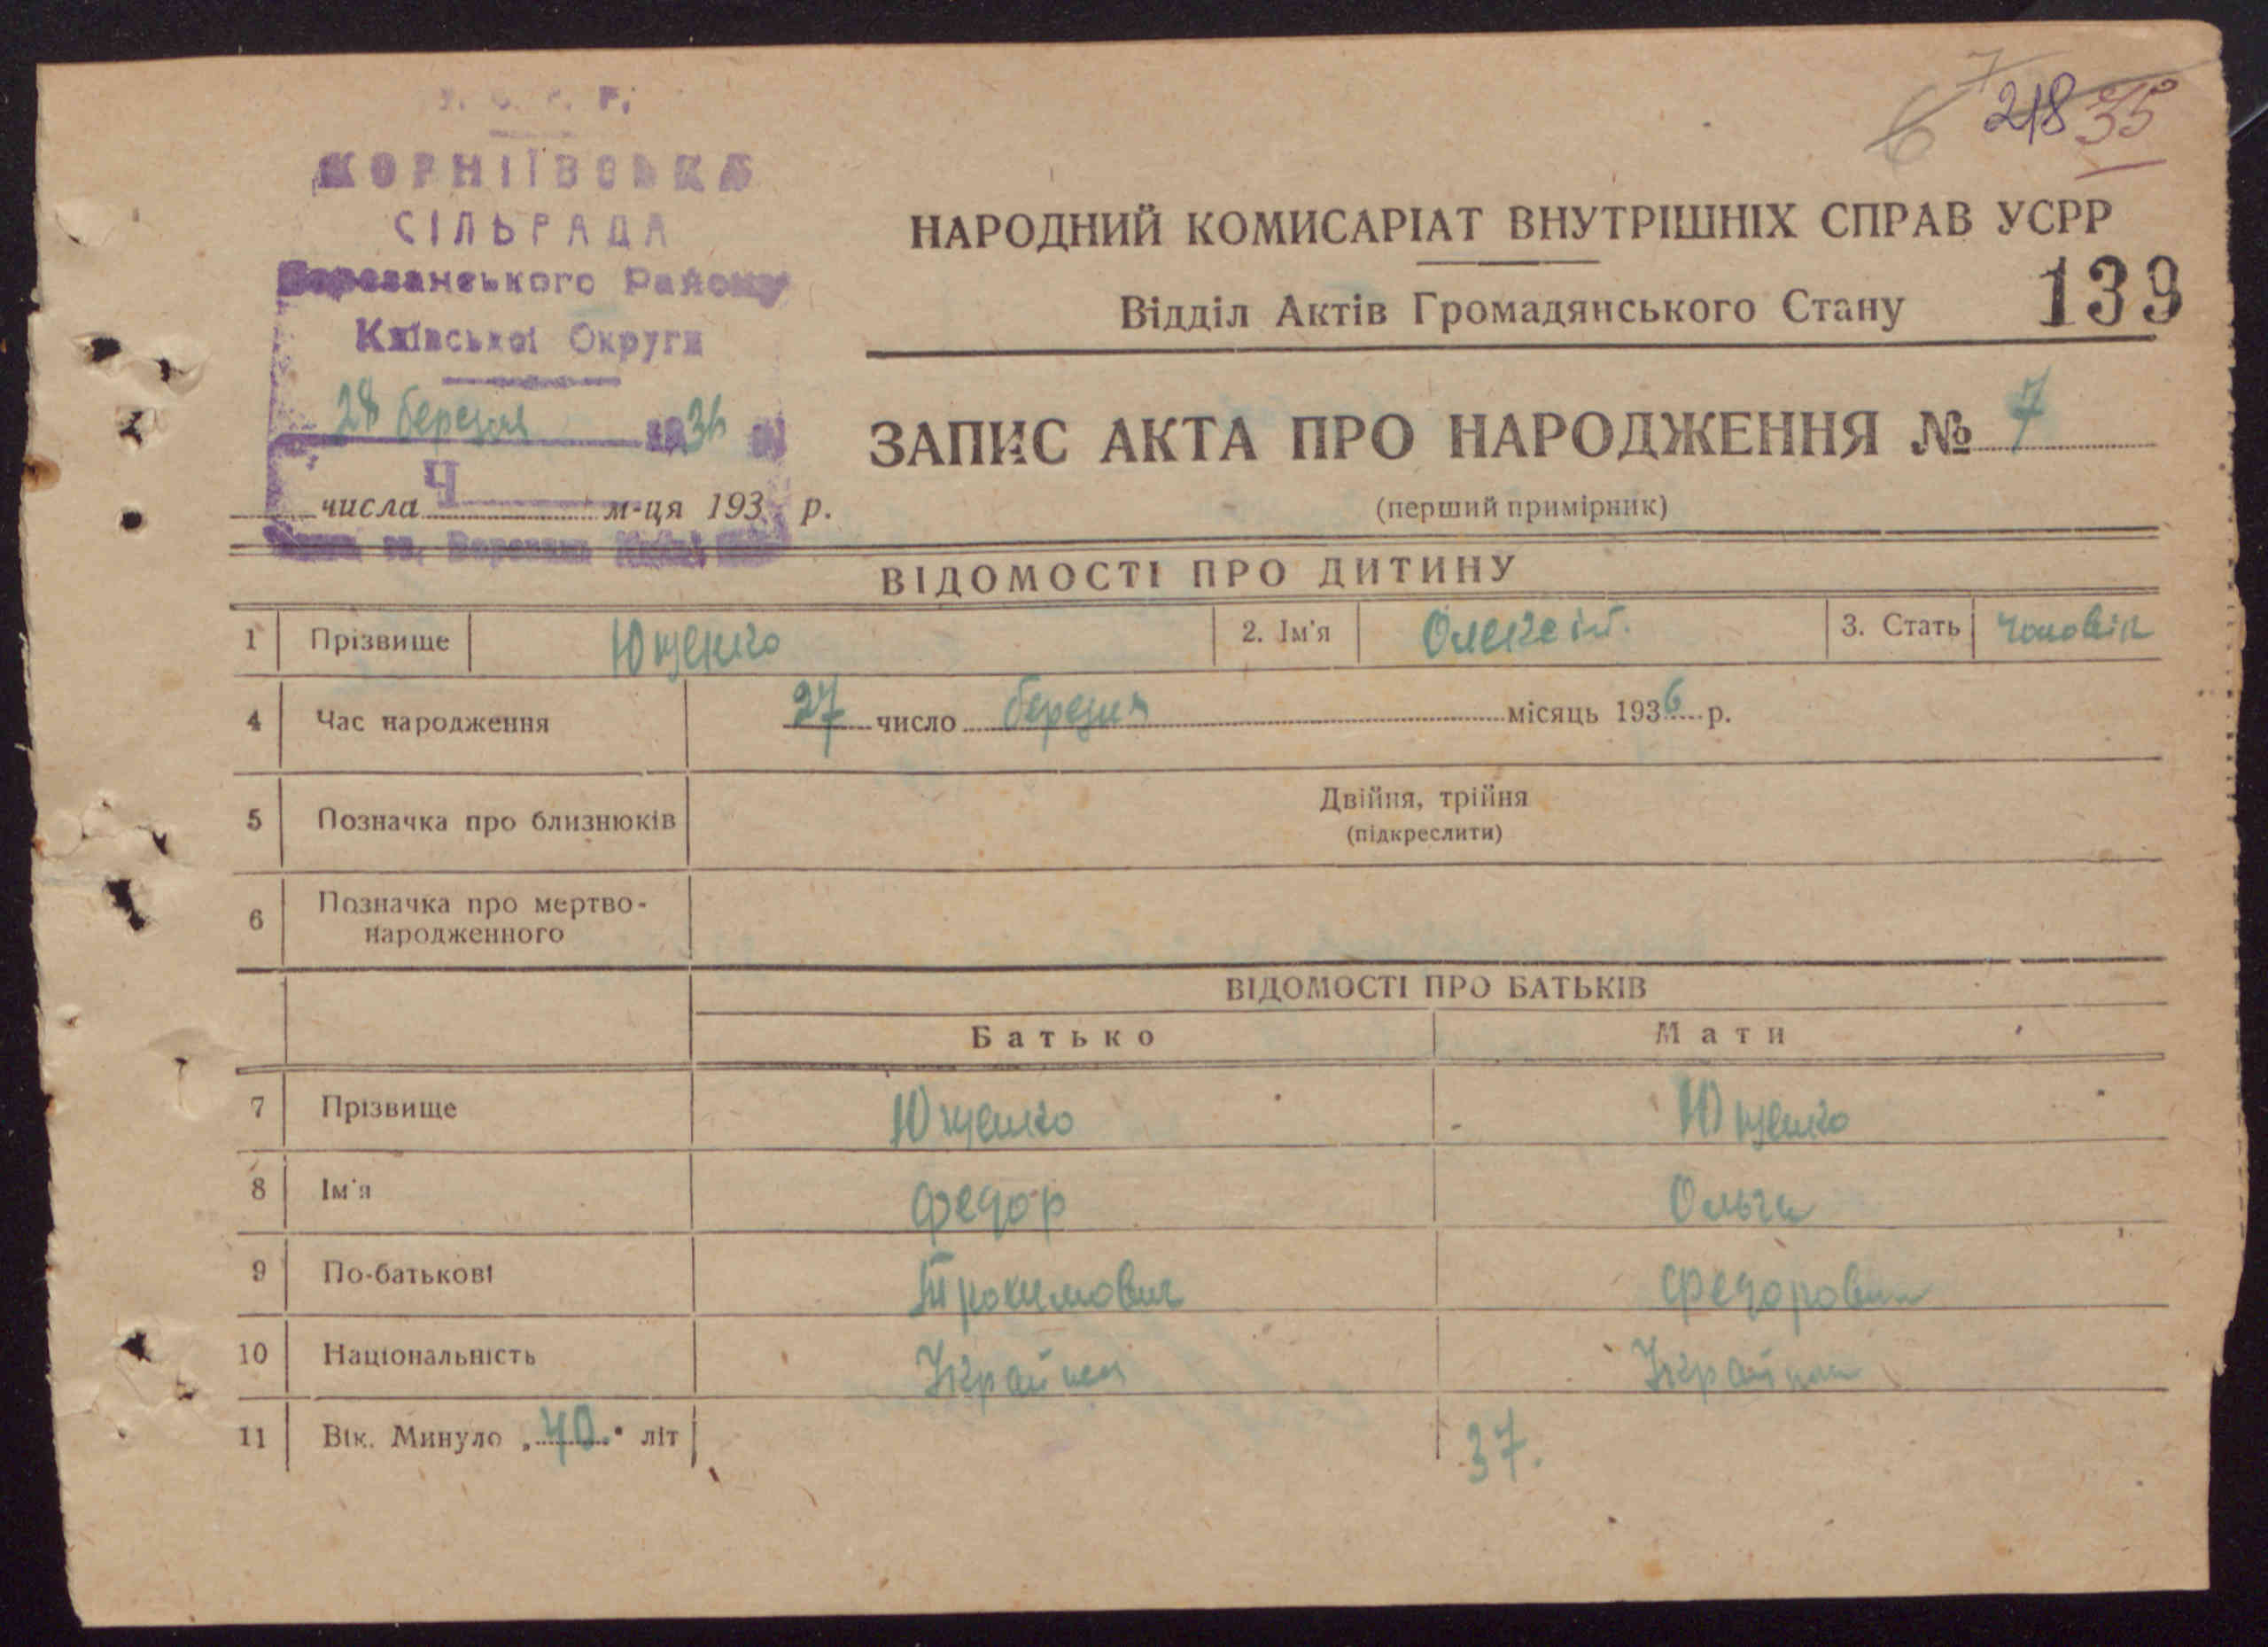 У. С. Р. Р.
КОРНІЇВСЬКА
СІЛЬРАДА
Березанського Району
Київської Округи
28 березня 1936
Ч
числа м-ця 193 р.
7
6 218 35
НАРОДНИЙ КОМИСАРІАТ ВНУТРІШНІХ СПРАВ УСРР
139
Відділ Актів Громадянського Стану
ЗАПИС АКТА ПРО НАРОДЖЕННЯ № 7
(перший примірник)
ВІДОМОСТІ ПРО ДИТИНУ
1 Прізвище Ющенко 2. Ім'я Олексій. 3. Стать чоловік
4 Час народження 27 число березня місяць 1936 р.
5 Позначка про близнюків Двійня, трійня
(підкреслити)
6 Позначка про мертво-
народженного
ВІДОМОСТІ ПРО БАТЬКІВ
Батько Мати
7 Прізвище Ющенко Ющенко
8 Ім'я Федор Ольга
9 По-батькові Трохимович Федоровна
10 Національність
11 Вік. Минуло „40." літ 37.